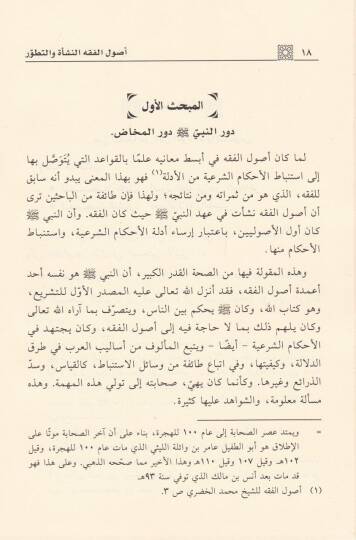 ١٨
أصول الفقه النشأة والتطوّر
المبحث الأول
دور النبيّ ﷺ دور المخاض.
لما كان أصول الفقه في أبسط معانيه علمًا بالقواعد التي يُتَوَصَّل بها
إلى استنباط الأحكام الشرعية من الأدلة(١) فهو بهذا المعنى يبدو أنه سابق
للفقه، الذي هو من ثمراته ومن نتائجه؛ ولهذا فإن طائفة من الباحثين ترى
أن أصول الفقه نشأت في عهد النبيّ ﷺ حيث كان الفقه. وأن النبي ﷺ
كان أول الأصوليين، باعتبار إرساء أدلة الأحكام الشرعية، واستنباط
الأحكام منها.
وهذه المقولة فيها من الصحة القدر الكبير، أن النبي ﷺ هو نفسه أحد
أعمدة أصول الفقه، فقد أنزل الله تعالى عليه المصدر الأوّل للتشريع،
وهو كتاب الله، وكان ﷺ يحكم بين الناس، ويتصرّف بما أراه الله تعالى
وكان يلهم ذلك بما لا حاجة فيه إلى أصول الفقه، وكان يجتهد في
الأحكام الشرعية - أيضًا - ويتبع المألوف من أساليب العرب في طرق
الدلالة، وكيفيتها، وفي اتباع طائفة من وسائل الاستنباط، كالقياس، وسدّ
الذرائع وغيرها. وكأنما كان يهيّء صحابته إلى تولي هذه المهمة. وهذه
مسألة معلومة، والشواهد عليها كثيرة.
= ويمتد عصر الصحابة إلى عام ١٠٠ للهجرة، بناء على أن آخر الصحابة موتًا على
الإطلاق هو أبو الطفيل عامر بن واثلة الليثي الذي مات عام ١٠٠ للهجرة، وقيل
١٠٢هـ وقيل ١٠٧ وقيل ١١٠هـ وهذا الأخير مما صحّحه الذهبي. وعلى هذا فهو
قد مات بعد أنس بن مالك الذي توفي سنة ٩٣هـ.
(١) أصول الفقه للشيخ محمد الخضري ص ٣.